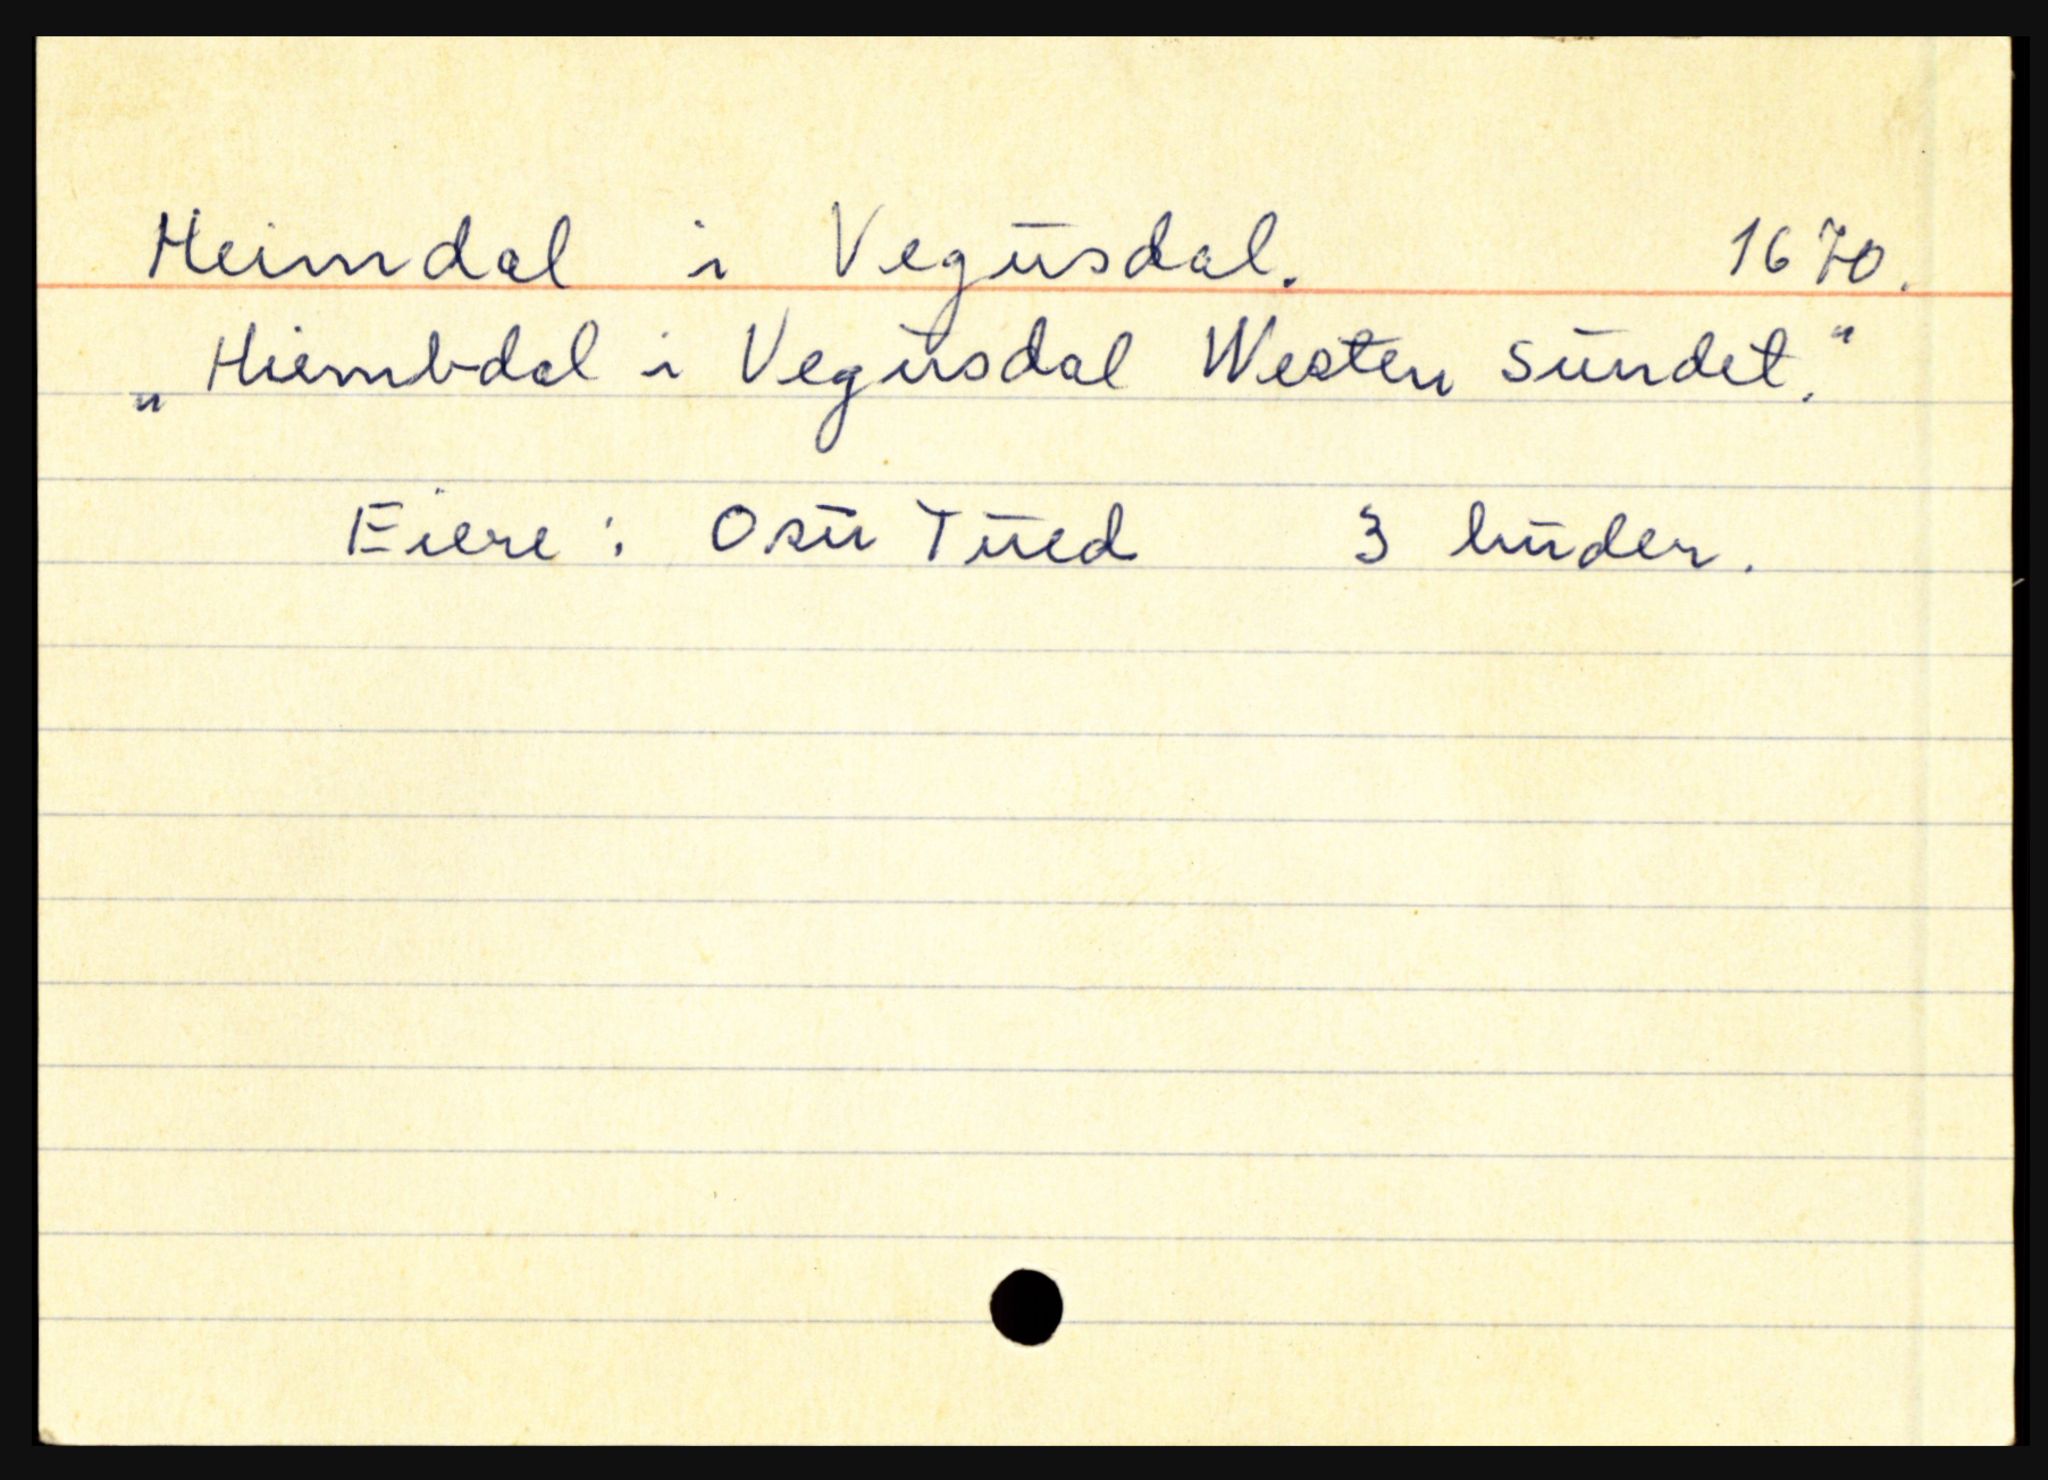 Heimdal i Vegusdal. 1670.
„Hiembdal i Vegusdal Westen sundet.“
Eiere: Osu Tued 3 huder.